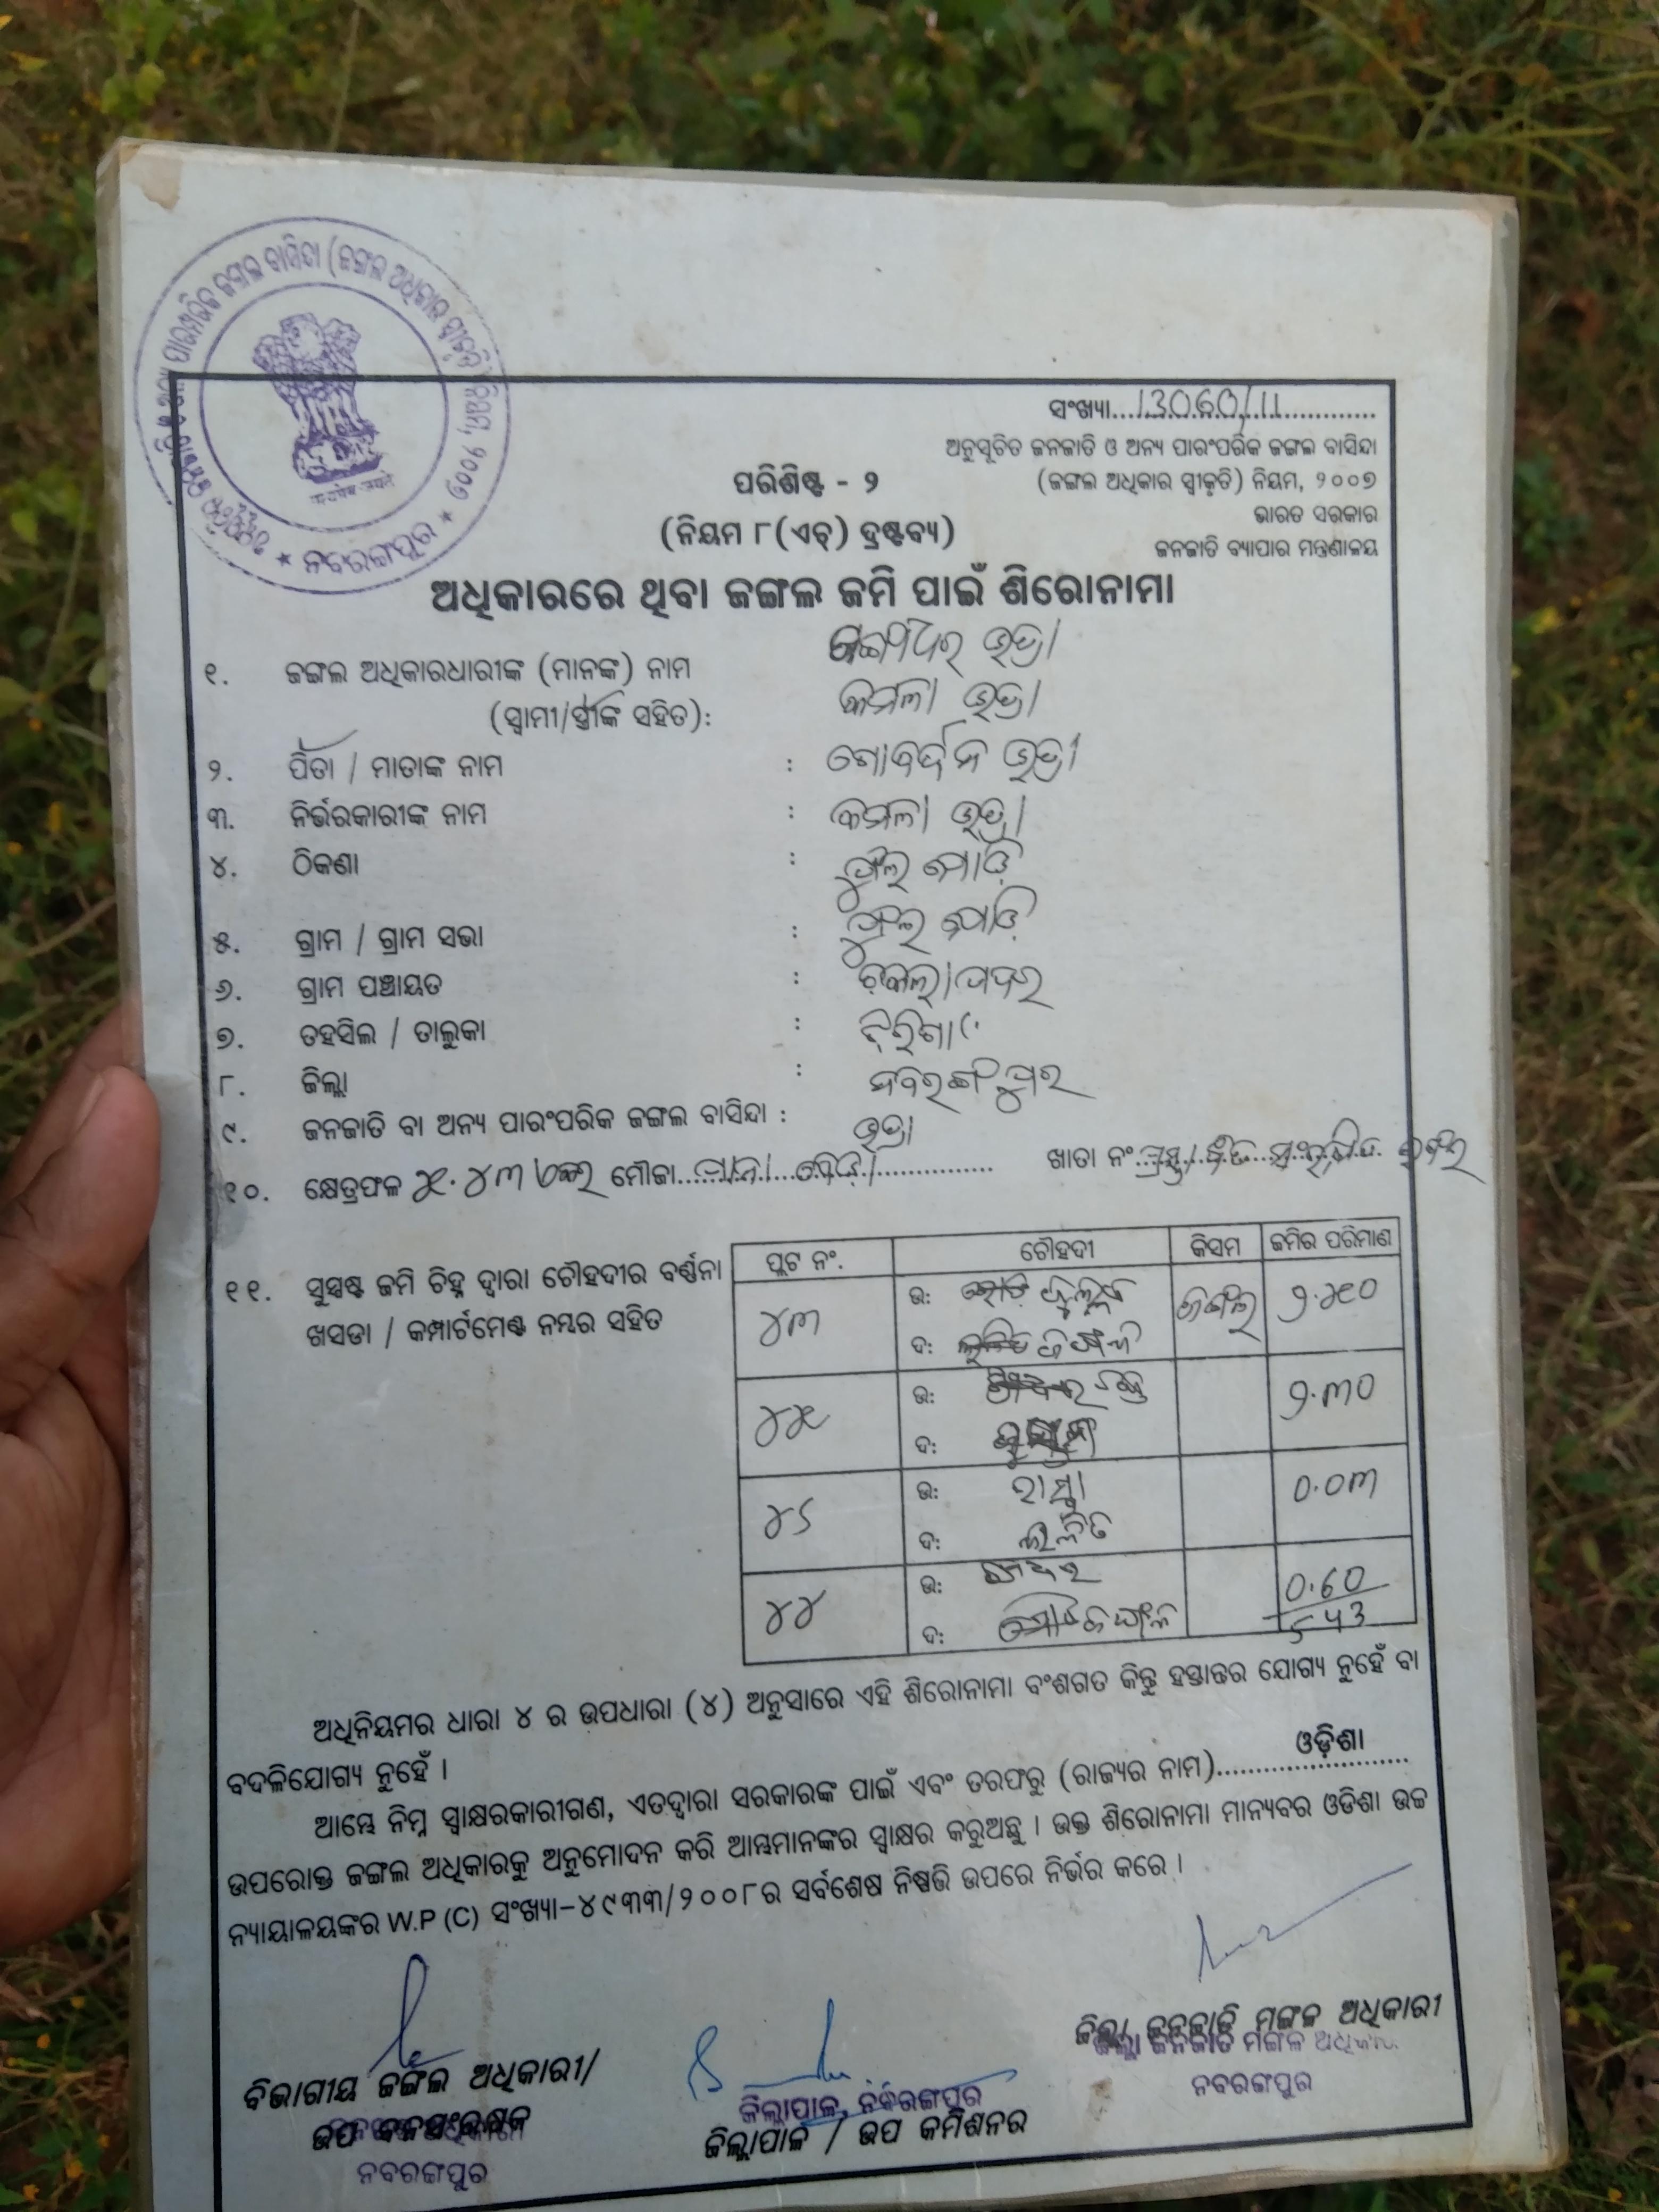 ସଂଖ୍ୟା 13060/11
ଅନୁସୂଚିତ ଜନଜାତି ଓ ଅନ୍ୟ ପାରଂପରିକ ଜଙ୍ଗଲ ବାସିନ୍ଦା
(ଜଙ୍ଗଲ ଅଧିକାର ସ୍ୱୀକୃତି) ନିୟମ, ୨୦୦୭
ଭାରତ ସରକାର
ଜନଜାତି ବ୍ୟାପାର ମନ୍ତ୍ରଣାଳୟ
ପରିଶିଷ୍ଟ - ୨
(ନିୟମ ୮(ଏଚ୍) ଦ୍ରଷ୍ଟବ୍ୟ)
ନବରଙ୍ଗପୁର
ଅଧିକାରରେ ଥିବା ଜଙ୍ଗଲ ଜମି ପାଇଁ ଶିରୋନାମା
୧. ଜଙ୍ଗଲ ଅଧିକାରଧାରୀଙ୍କ (ମାନଙ୍କ) ନାମ ଭତ୍ରା
(ସ୍ୱାମୀ/ସ୍ତ୍ରୀଙ୍କ ସହିତ): କମଳା ଭତ୍ରା
୨. ପିତା / ମାତାଙ୍କ ନାମ : ଗୋବର୍ଦ୍ଧନ ଭତ୍ରା
୩. ନିର୍ଭରକାରୀଙ୍କ ନାମ : କମଳା ଭତ୍ରା
୪. ଠିକଣା :
୫. ଗ୍ରାମ / ଗ୍ରାମ ସଭା :
୬. ଗ୍ରାମ ପଞ୍ଚାୟତ : ଚକଲାପଦର
୭. ତହସିଲ / ତାଲୁକା : ଝରିଗାଁ
୮. ଜିଲ୍ଲା : ନବରଙ୍ଗପୁର
୯. ଜନଜାତି ବା ଅନ୍ୟ ପାରଂପରିକ ଜଙ୍ଗଲ ବାସିନ୍ଦା : ଭତ୍ରା
୧୦. କ୍ଷେତ୍ରଫଳ ୫.୪୩ ଏକର ମୌଜା ଖାତା ନଂ ପ୍ରସ୍ତାବିତ ସଂରକ୍ଷିତ ଜଙ୍ଗଲ
୧୧. ସୁସ୍ପଷ୍ଟ ଜମି ଚିହ୍ନ ଦ୍ୱାରା ଚୌହଦୀର ବର୍ଣ୍ଣନା
ଖସଡା / କମ୍ପାର୍ଟମେଣ୍ଟ ନମ୍ବର ସହିତ
ପ୍ଲଟ ନଂ. ଚୌହଦୀ କିସମ ଜମିର ପରିମାଣ
୪୩ ଉ: ଜଙ୍ଗଲ ୨.୫୦
ଦ:
୪୫ ଉ: ୨.୩୦
ଦ:
୪୬ ଉ: ରାସ୍ତା ୦.୦୩
ଦ: ଲଳିତ
୪୪ ଉ: 0.60
ଦ: 5.43
ଅଧିନିୟମର ଧାରା ୪ ର ଉପଧାରା (୪) ଅନୁସାରେ ଏହି ଶିରୋନାମା ବଂଶଗତ କିନ୍ତୁ ହସ୍ତାନ୍ତର ଯୋଗ୍ୟ ନୁହେଁ ବା
ବଦଳିଯୋଗ୍ୟ ନୁହେଁ ।
ଆମ୍ଭେ ନିମ୍ନ ସ୍ୱାକ୍ଷରକାରୀଗଣ, ଏତଦ୍ୱାରା ସରକାରଙ୍କ ପାଇଁ ଏବଂ ତରଫରୁ (ରାଜ୍ୟର ନାମ) ଓଡ଼ିଶା
ଉପରୋକ୍ତ ଜଙ୍ଗଲ ଅଧିକାରକୁ ଅନୁମୋଦନ କରି ଆମ୍ଭମାନଙ୍କର ସ୍ୱାକ୍ଷର କରୁଅଛୁ । ଉକ୍ତ ଶିରୋନାମା ମାନ୍ୟବର ଓଡିଶା ଉଚ୍ଚ
ନ୍ୟାୟାଳୟଙ୍କର W.P (C) ସଂଖ୍ୟା-୪୯୩୩/୨୦୦୮ର ସର୍ବଶେଷ ନିଷ୍ପତ୍ତି ଉପରେ ନିର୍ଭର କରେ ।
ବିଭାଗୀୟ ଜଙ୍ଗଲ ଅଧିକାରୀ/
ଉପ ବନସଂରକ୍ଷକ
ନବରଙ୍ଗପୁର
ଜିଲ୍ଲାପାଳ, ନବରଙ୍ଗପୁର
ଜିଲ୍ଲାପାଳ / ଉପ କମିଶନର
ଜିଲ୍ଲା ଜନଜାତି ମଙ୍ଗଳ ଅଧିକାରୀ
ଜିଲ୍ଲା ଜନଜାତି ମଙ୍ଗଳ ଅଧିକାରୀ
ନବରଙ୍ଗପୁର